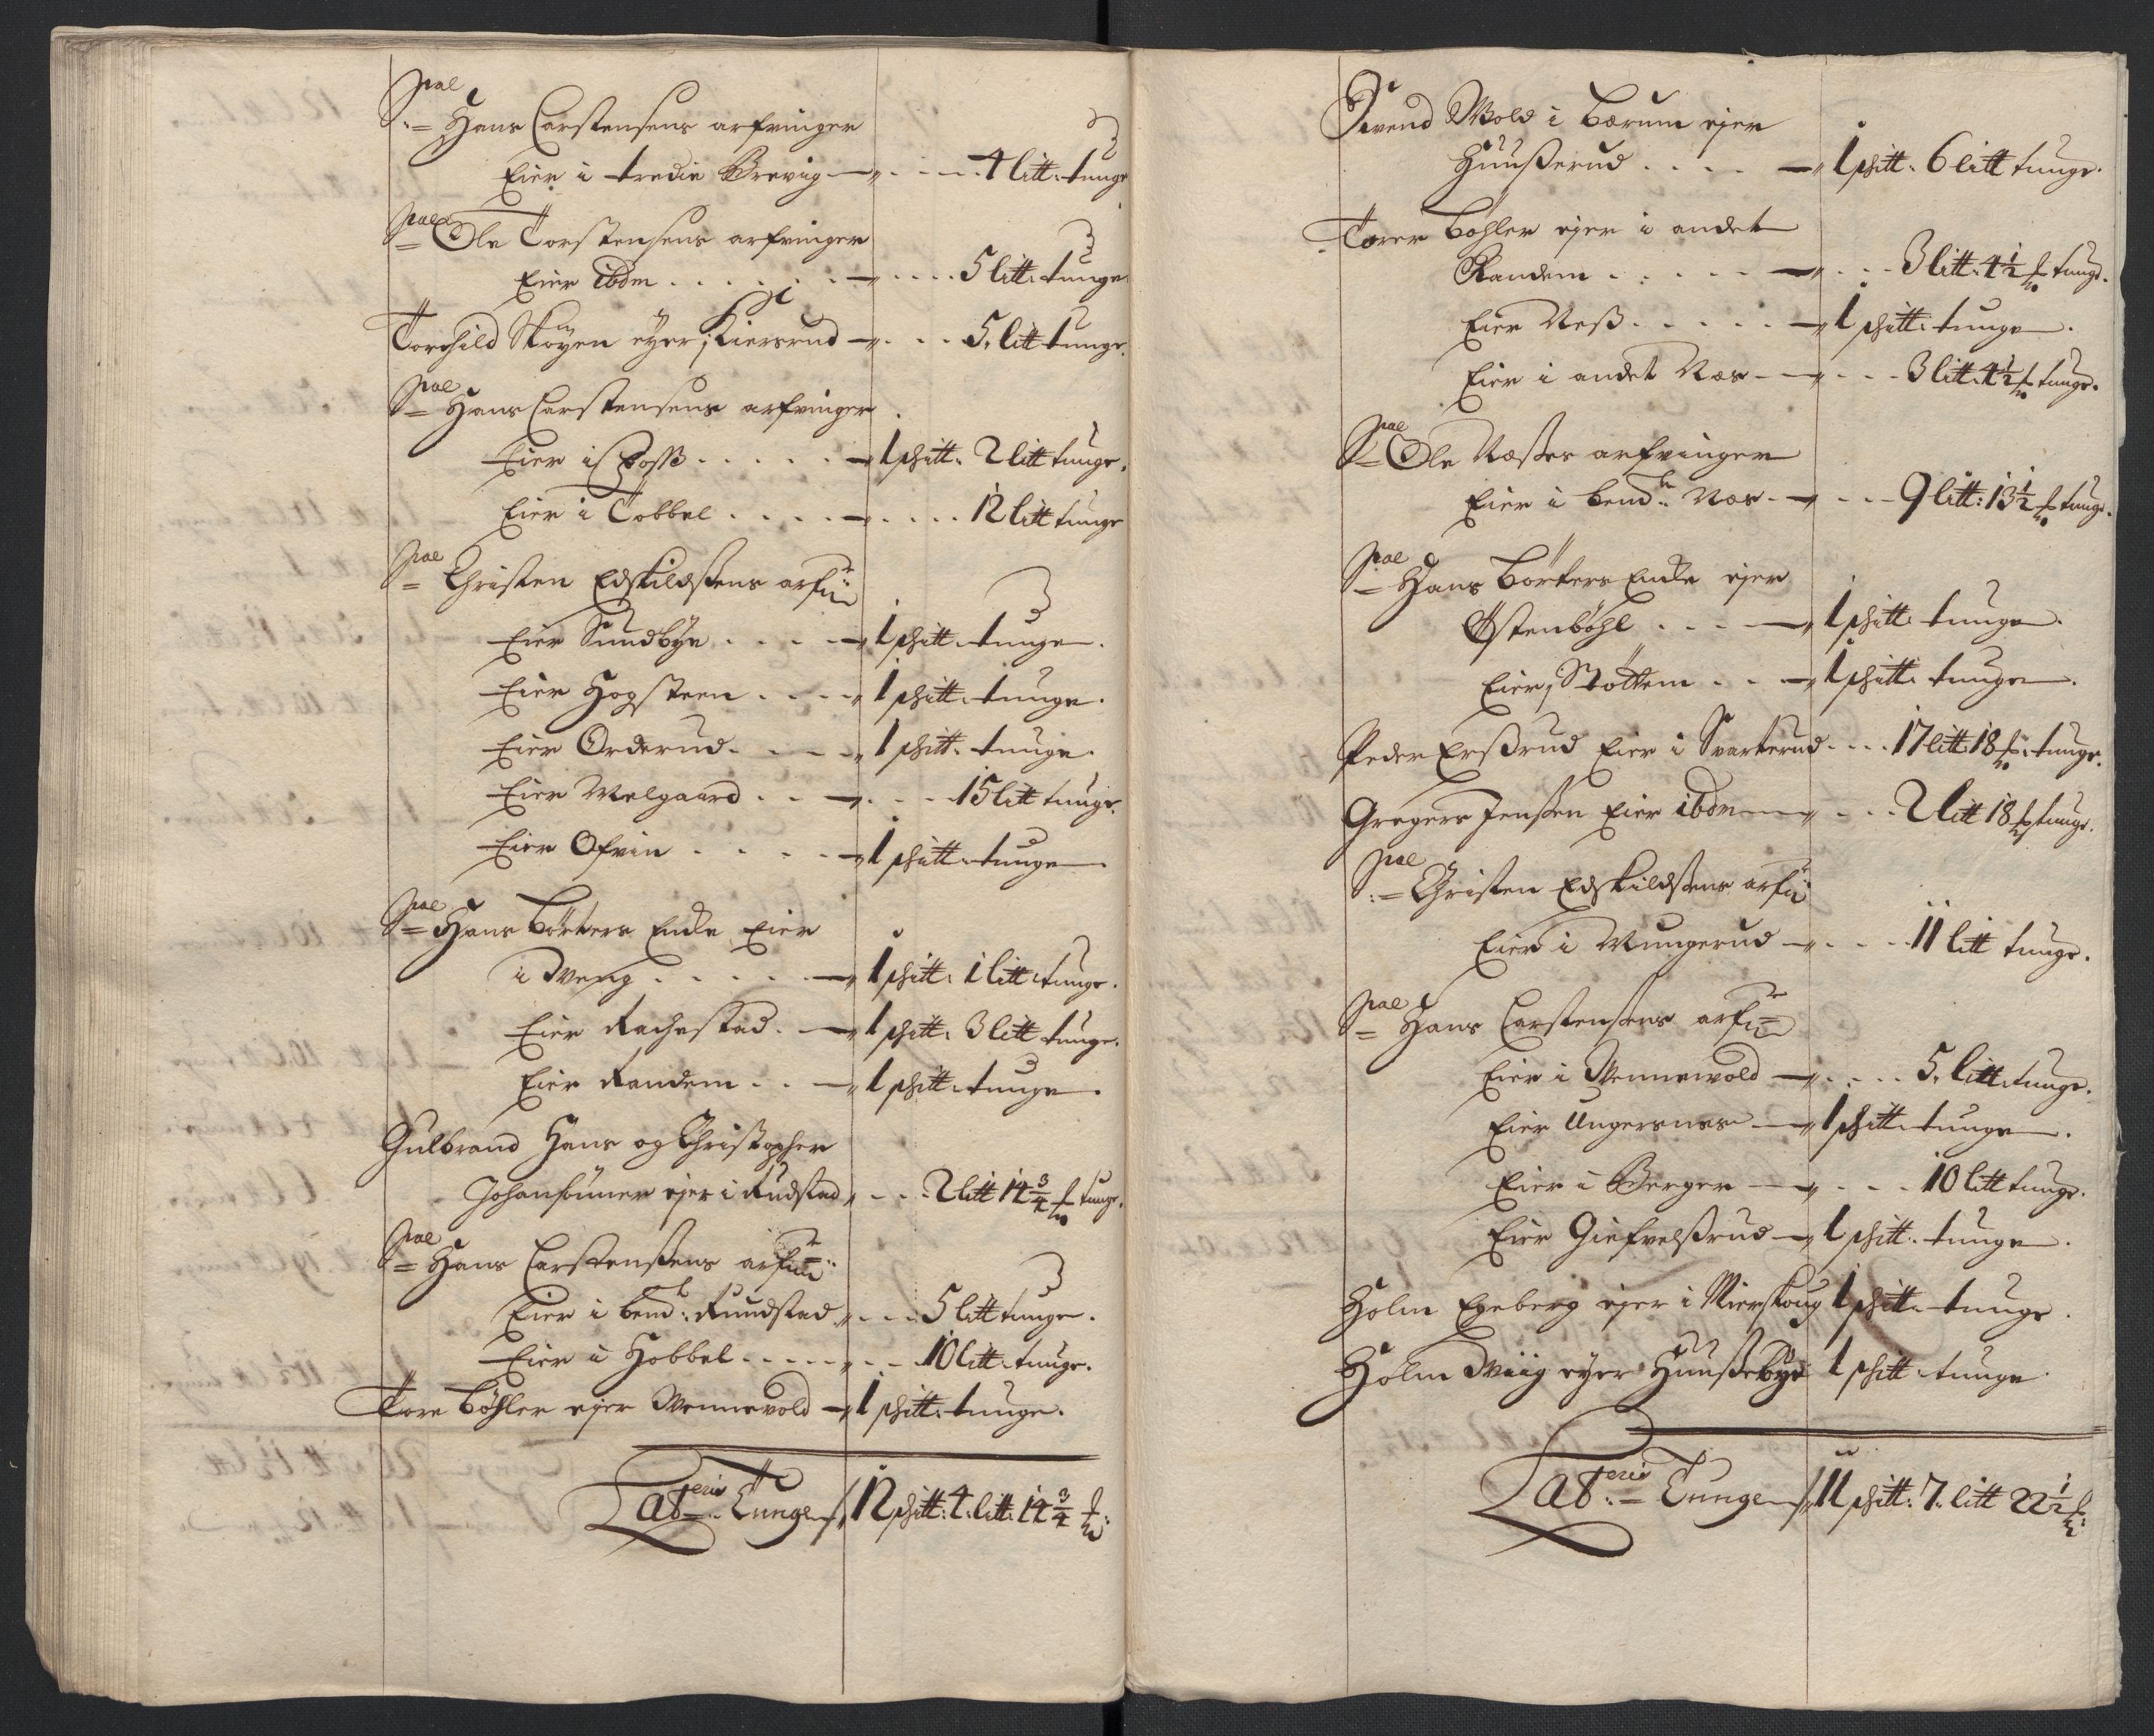 Sal
:= Hans Carstensens arfvinger
Eier i tredie Brevig — 4 litt: tunge
Sal
= Ole Torstensens arfvinger
Eier ibdm . . . . . — 5 litt: tunge
Torchild Skøyen eyer i Kiersrud — 5. litt tunge.
Sal
= Hans Carstensens arfvinger
Eier i — 1 schitt: 2 litt tunge.
Eier i Tobbel . . . . — 12 litt tunge
Sal
= Christen Edskildsens arf:
Eier Sundbye . . . . — 1 schitt: tunge.
Eier Hogsteen . . . . 1 schitt: tunge.
Eier Orderud . . . . 1 schitt: tunge.
Eier Melgaard . . — 15 litt tunge.
Eier Ofvin . . . . — 1 schitt: tunge.
Sal
= Hans Børters Encke Eier
i Dveng . . . . . — 1 schitt: 1 litt: tunge.
Eier Rachestad. — 1 schitt: 3 litt tunge.
Eier Randem . . — 1 schitt: tunge.
Gulbrand Hans og Christopher
Johansønner ejer i Rudstad — 2 litt 14 3/4 tunge.
Sal
= Hans Carstensens arf:
Eier i bemd: Rundstad . . . 5 litt tunge.
Eier i Hobbel . . . . . 10 litt: tunge.
Tore Bøhler ejer Wennevold — 1 schitt: tunge.
Lateris Tunge // 12 schitt: 4. litt: 14 3/4
Svend Wold i Berum ejer
Huusserud . . . . — 1 schitt: 6 litt tunge.
Torer Bøhler ejer i andet
Randem . . . . . — 3 litt: 4 1/2 tunge.
Eier Ness . . . . . — 1 schitt: tunge.
Eier i andet Næs — 3 litt: 4 1/2 tunge.
Sal
= Ole Næsses arfvinger
Eier i bemd: Næs — 9 litt: 13 1/2 tunge.
Sal
= Hans Børters Encke ejer
Østenbøhl . . . — 1 schitt: tunge.
Eier Stottem . . — 1 schitt: tunge.
Peder Erssrud Eier i Svarterud . . . 17 litt 18 tunge.
Gregers Jenssen Eier ibdm — 2 litt 18 tunge.
Sal
:= Christen Edskildsens arf:
Eier i Mungerud — 11 litt tunge.
Sal
= Hans Carstensens arf:
Eier i Wennevold — 5. litt: tunge.
Eier Ungersnes — 1 schitt: tunge.
Eier i Berger — 10 litt tunge.
Eier Giefvelssrud — 1 schitt: tunge.
Holm Egeberg ejer i Mierskoug 1 schitt: tunge.
Holm Dviig eyer Huussebye 1 schitt: tunge
Lateris Tunge // 11 schitt: 7. litt 22 1/2